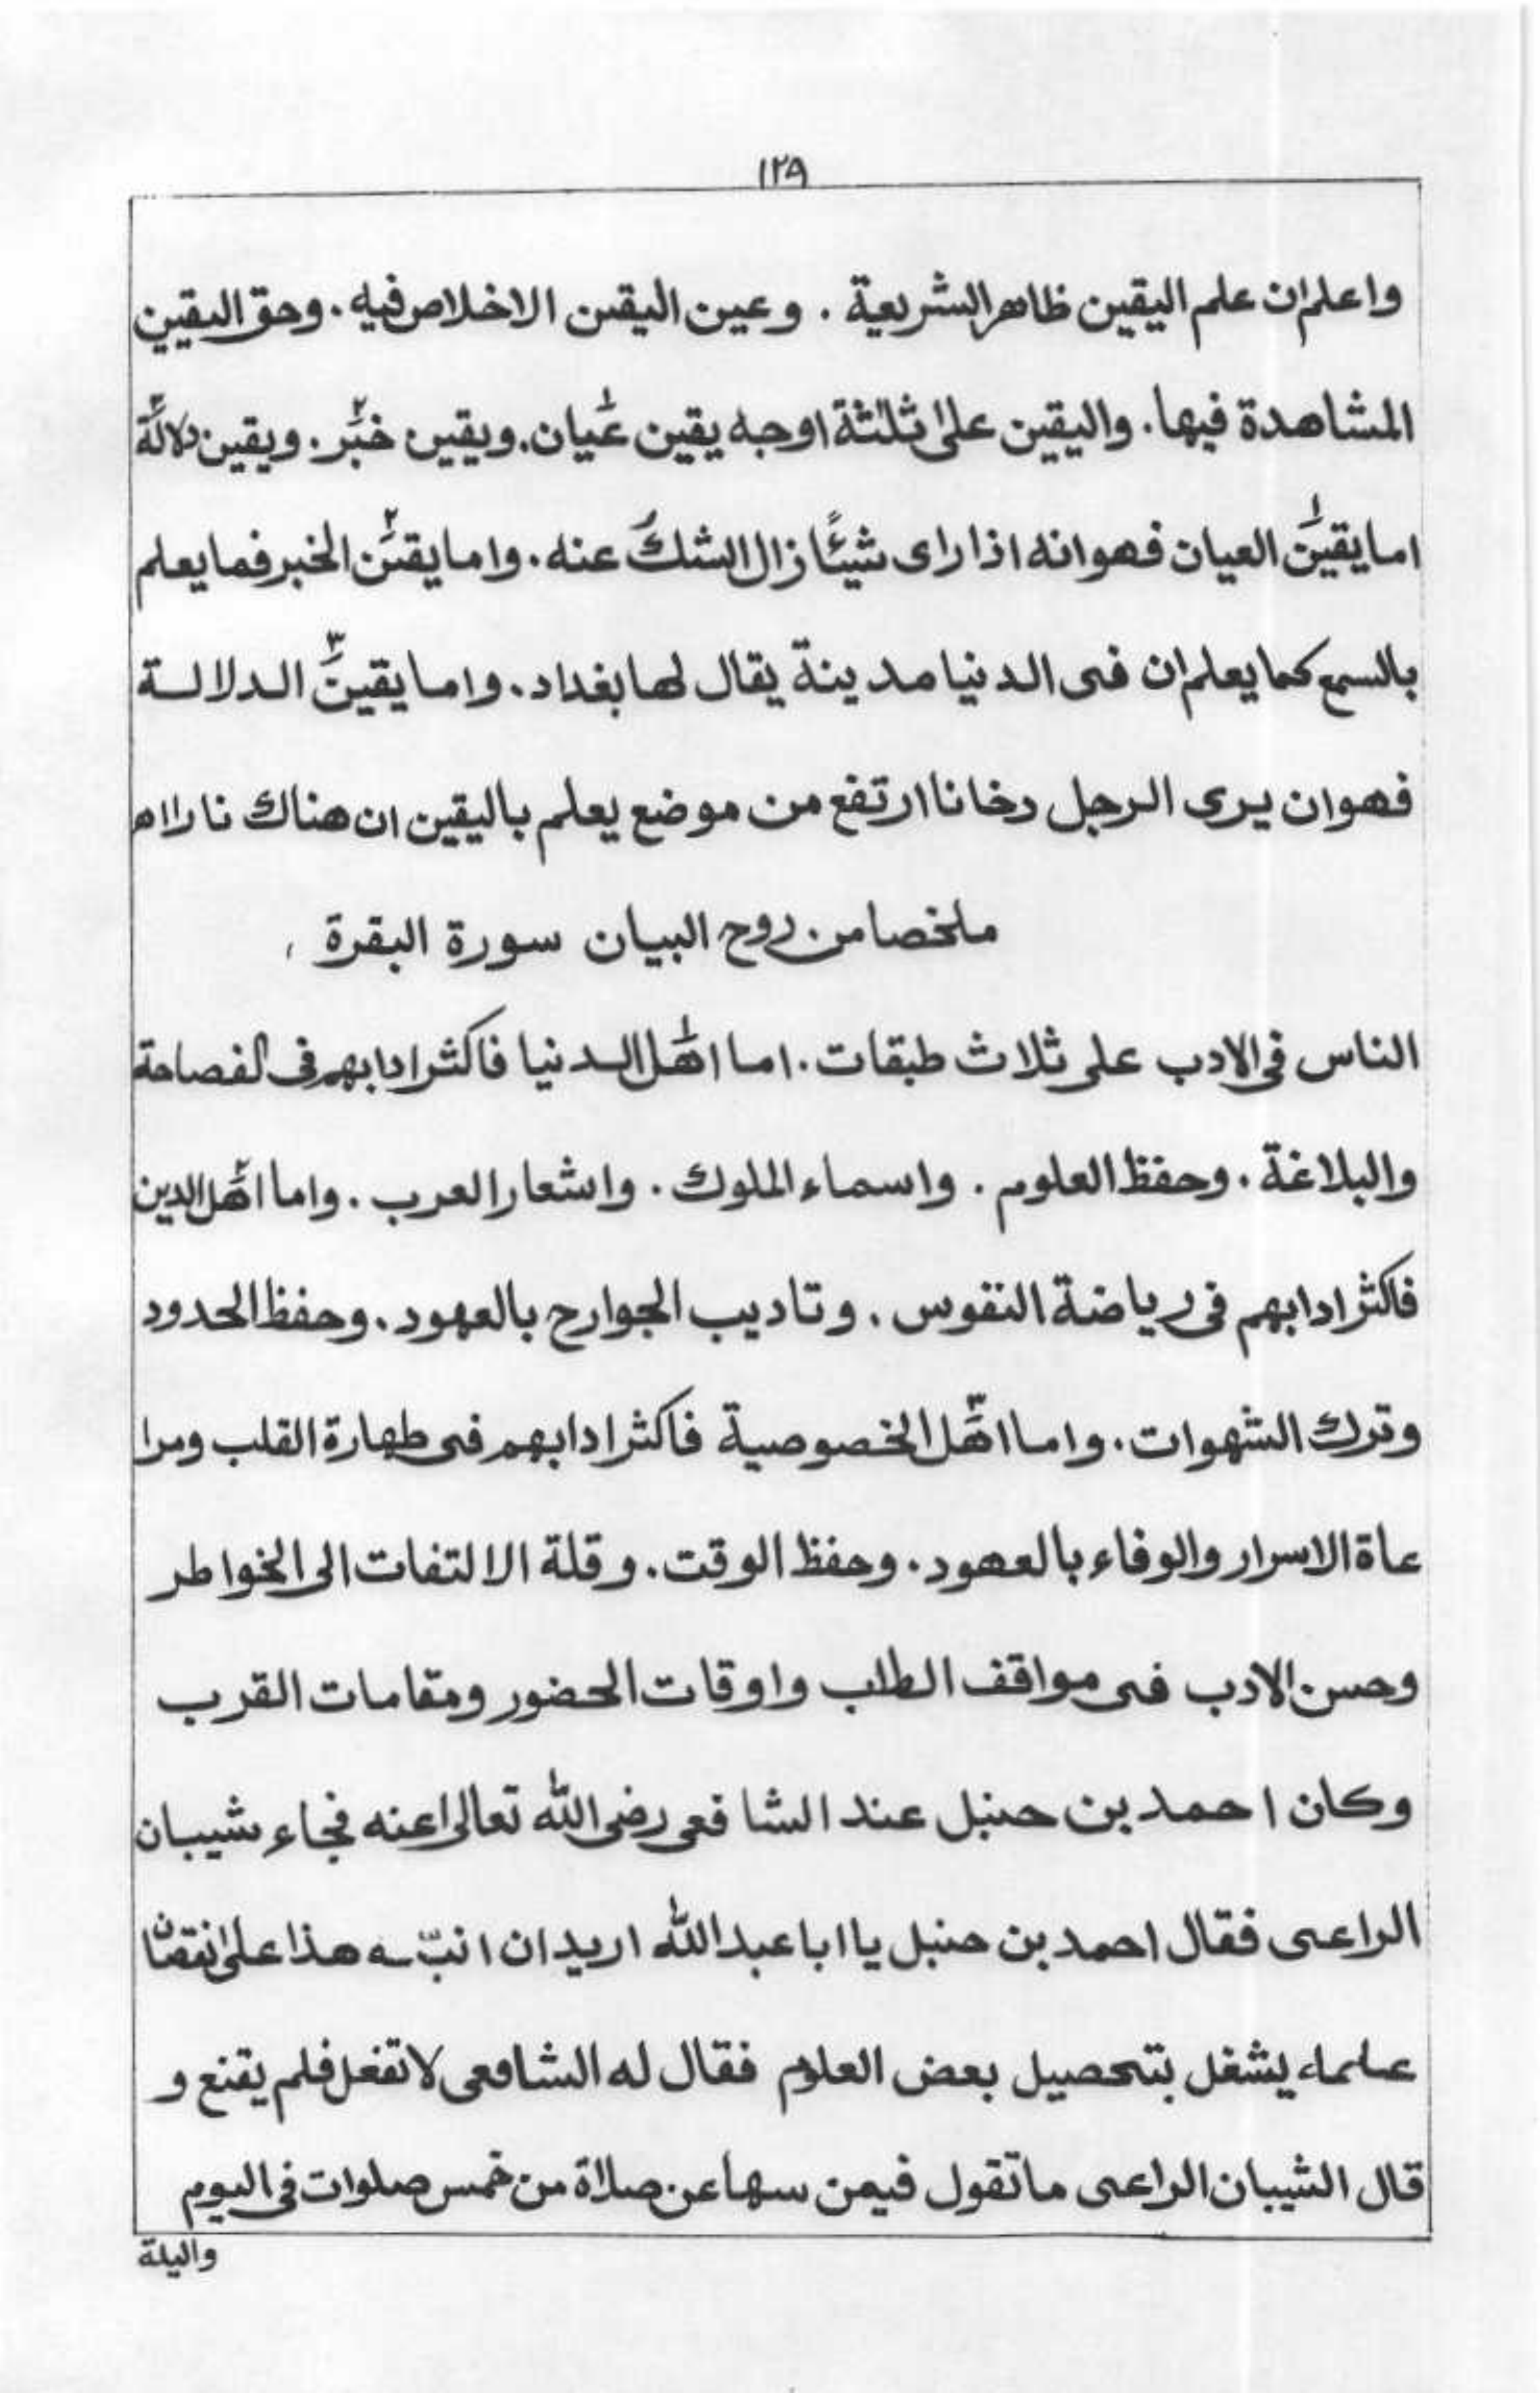 ١٢٩
واعلم ان علم اليقين ظاهر الشريعة . وعين اليقين الاخلاص فيه . وحق اليقين
المشاهدة فيها . واليقين على ثلثة اوجه يقين عيان . ويقين خبر . ويقين دلالة
اما يقين العيان فهو انه اذا راى شيئًا زال الشك عنه . واما يقين الخبر فما يعلم
بالسمع كما يعلم ان فى الدنيا مدينة يقال لها بغداد . واما يقين الدلالة
فهو ان يرى الرجل دخانا ارتفع من موضع يعلم باليقين ان هناك نارا اه
ملخصا من روح البيان سورة البقرة ،
الناس فى الادب على ثلاث طبقات . اما اهل الدنيا فاكثر ادابهم فى الفصاحة
والبلاغة . وحفظ العلوم . واسماء الملوك . واشعار العرب . واما اهل الدين
فاكثر ادابهم فى رياضة النفوس . وتاديب الجوارح بالعهود . وحفظ الحدود
وترك الشهوات . واما اهل الخصوصية فاكثر ادابهم فى طهارة القلب ومرا
عاة الاسرار والوفاء بالعهود . وحفظ الوقت . وقلة الالتفات الى الخواطر
وحسن الادب فى مواقف الطلب واوقات الحضور ومقامات القرب
وكان احمد بن حنبل عند الشافعى رضى الله تعالى عنه فجاء شيبان
الراعى فقال احمد بن حنبل يا ابا عبد الله اريد ان انبّه هذا على نقصان
علمه يشغل بتحصيل بعض العلوم فقال له الشافعى لا تفعل فلم يقنع و
قال الشيبان الراعى ما تقول فيمن سها عن صلاة من خمس صلوات فى اليوم
واليلة